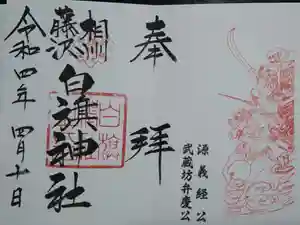 奉拝
源義経公
武蔵坊弁慶公
相州
藤沢
白旗神社
令和四年 四月十日